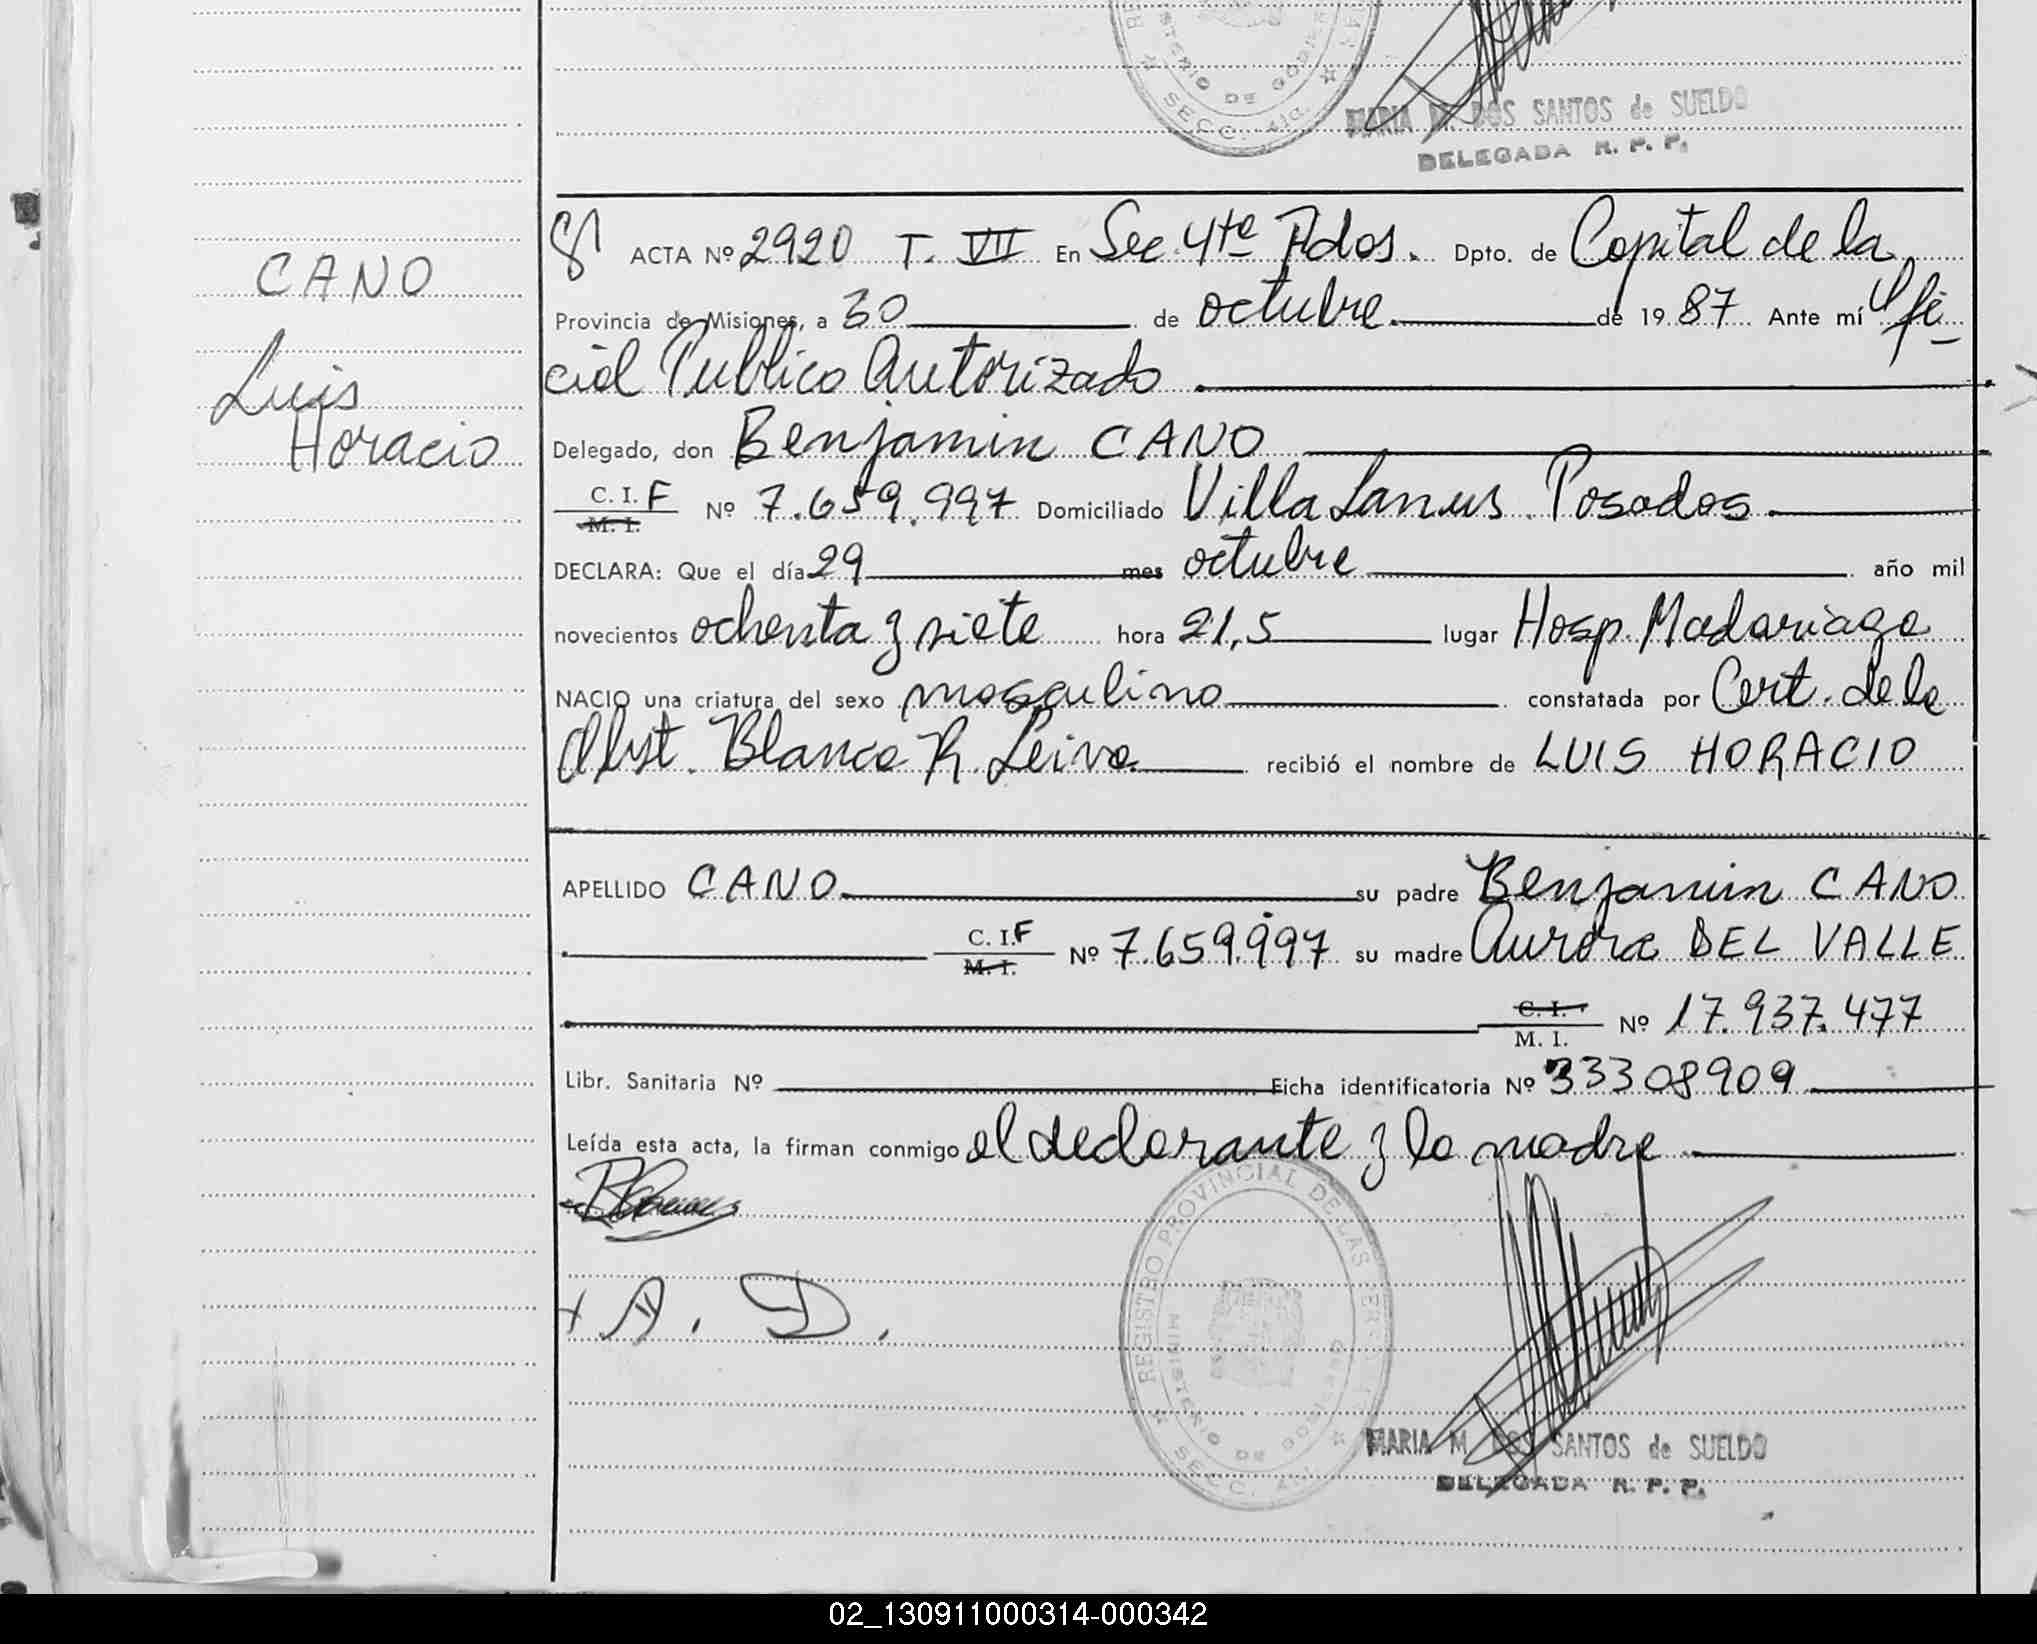 MINISTERIO DE GOBIERNO
SECC. 4ta.
MARIA M. DOS SANTOS de SUELDO
DELEGADA R. P. P.
CANO
Luis
Horacio
ACTA Nº 2920 T. VII En Sec. 4ta Pdas. Dpto. de Capital de la
Provincia de Misiones, a 30 de octubre de 1987 Ante mí Ofi-
cial Publico Autorizado
Delegado, don Benjamin CANO
C. I. F
M. I. Nº 7.659.997 Domiciliado Villa Lanus. Posadas
DECLARA: Que el día 29 mes octubre año mil
novecientos ochenta y siete hora 21,5 lugar Hosp. Madariaga
NACIO una criatura del sexo masculino constatada por Cert. de la
Obst. Blanca R. Leiva recibió el nombre de LUIS HORACIO
APELLIDO CANO su padre Benjamin CANO
C. I. F
M. I. Nº 7.659.997 su madre Aurora DEL VALLE
C. I.
M. I. Nº 17.937.477
Libr. Sanitaria Nº Ficha identificatoria Nº 33308909
Leída esta acta, la firman conmigo el declarante y la madre
+ A. D.
REGISTRO PROVINCIAL DE LAS PERSONAS
MINISTERIO DE GOBIERNO
SECC. 4ta.
MARIA M. DOS SANTOS de SUELDO
DELEGADA R. P. P.
02_130911000314-000342